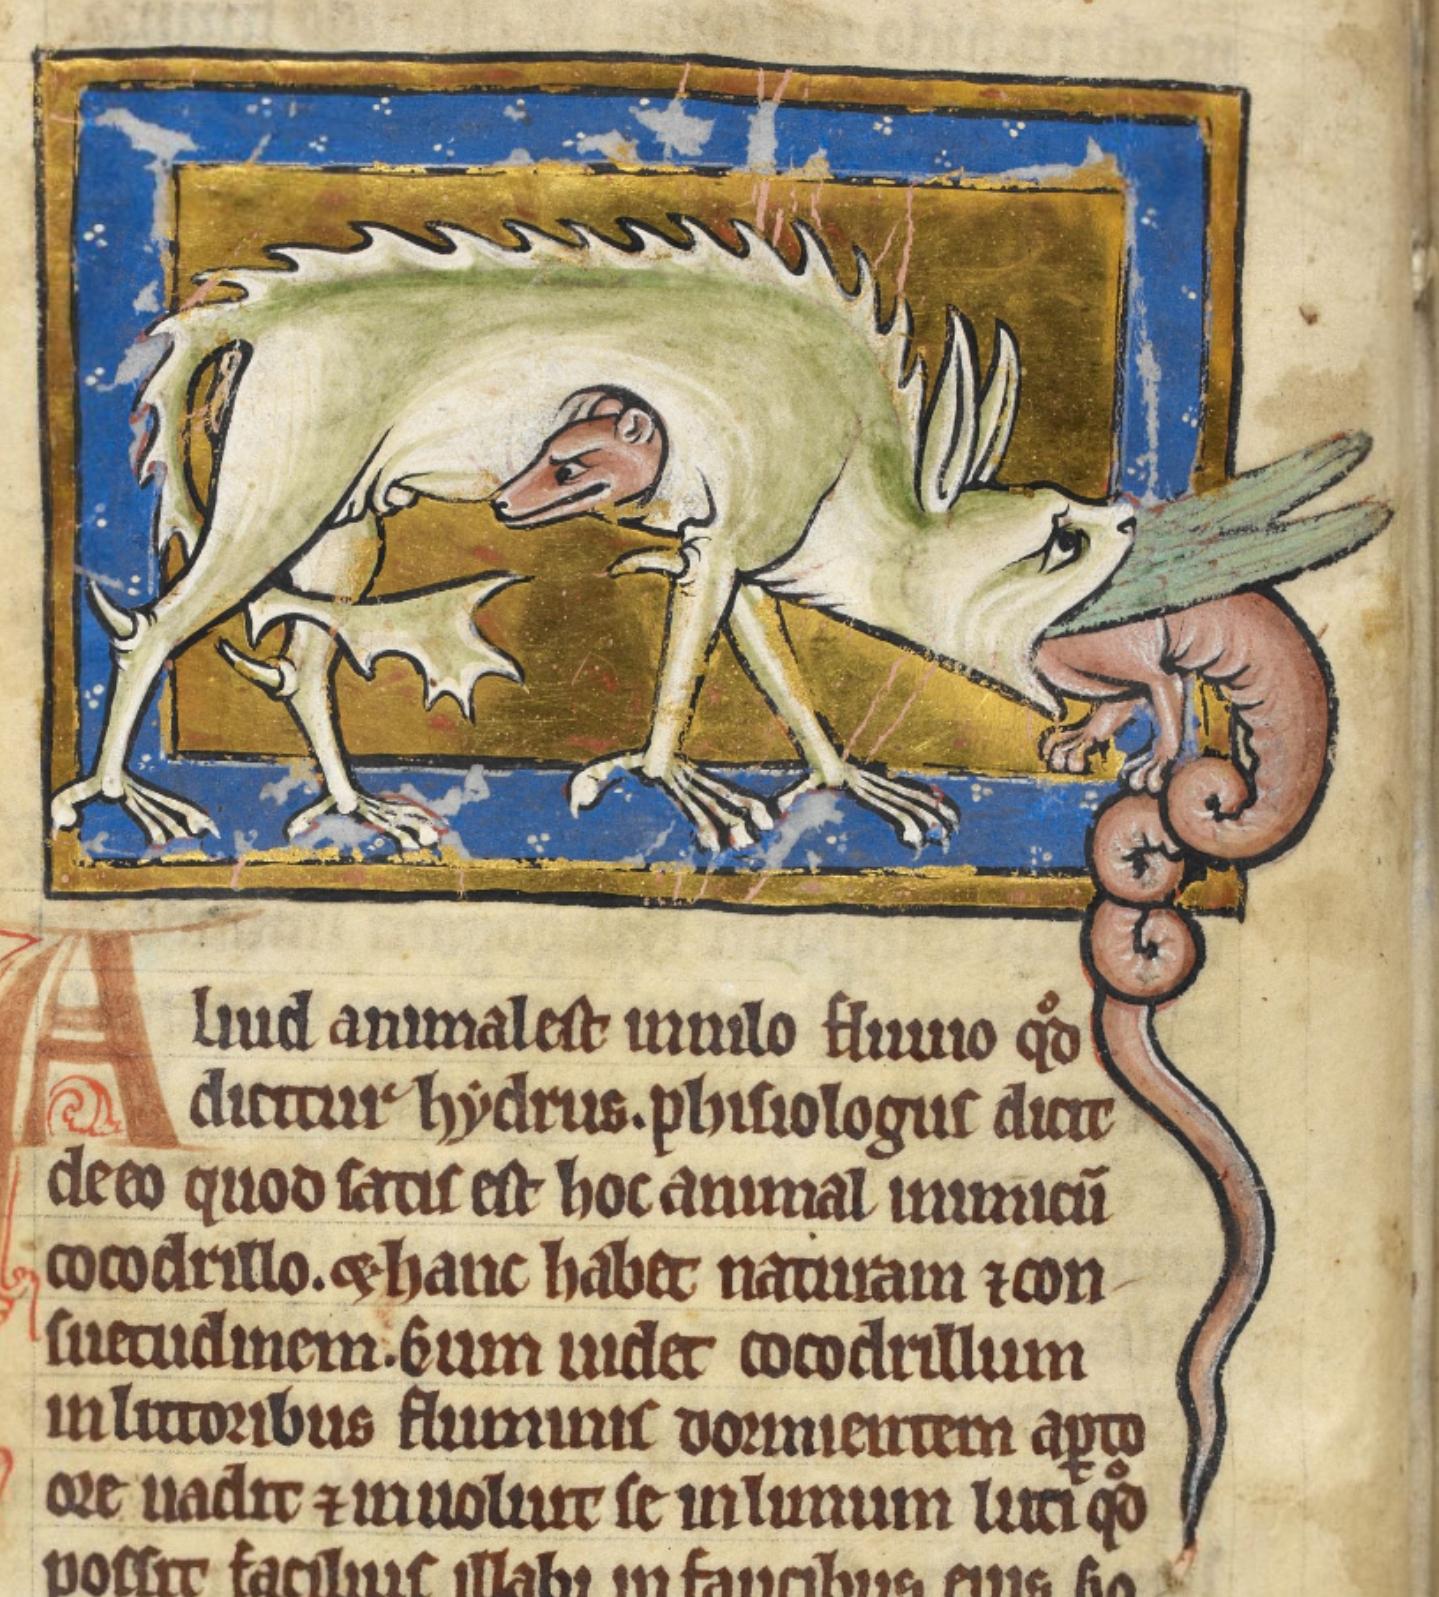 Aliud animal est in nilo fluuio qd̊
dicitur hẏdrus. phisiologus dicit
de eo quod satis est hoc animal inimicū
cocodrillo. & hanc habet naturam ⁊ con
suetudinem. Cum uidet cocodrillum
in littoribus fluminis dormientem aꝑto
ore uadit ⁊ inuoluit se in limum luti qd̊
possit facilius illabi in faucibus eius